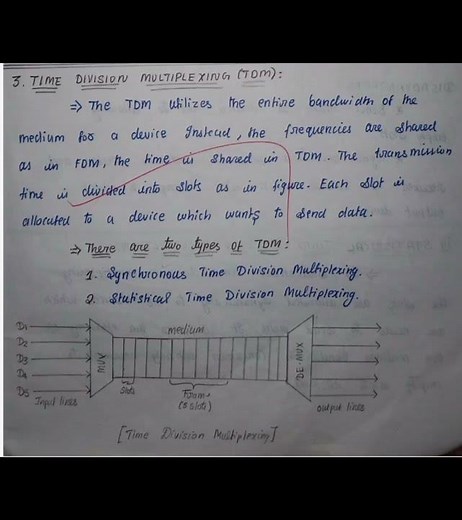 3. TIME DIVISION MULTIPLEXING (TDM):
⇒ The TDM utilizes the entire bandwidth of the
medium for a device Instead, the frequencies are shared
as in FDM, the time is shared in TDM. The transmission
time is divided into slots as in figure. Each slot is
allocated to a device which wants to send data.
⇒ There are two types of TDM:
1. Synchronous Time Division Multiplexing.
2. Statistical Time Division Multiplexing.
medium
D1
D2
D3
D4
D5
MUX
DE-MUX
Input lines
slots
(5 slots)
output lines
[Time Division Multiplexing]